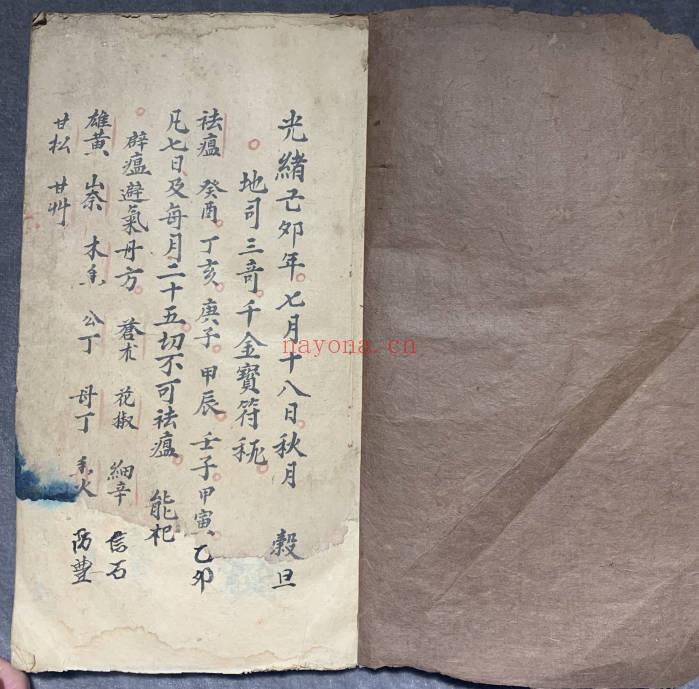 光緒己夘年七月十八日秋月 穀旦
地司三竒千金寶符
祛瘟 癸酉 丁亥 庚子 甲辰 壬子 甲寅 乙夘
凡七日及每月二十五切不可祛瘟 能杞
辟瘟避氣丹方 蒼朮 花椒 細辛 信石
雄黃 山奈 木香 公丁 母丁 防豊
甘松 甘艸
nayona.cn